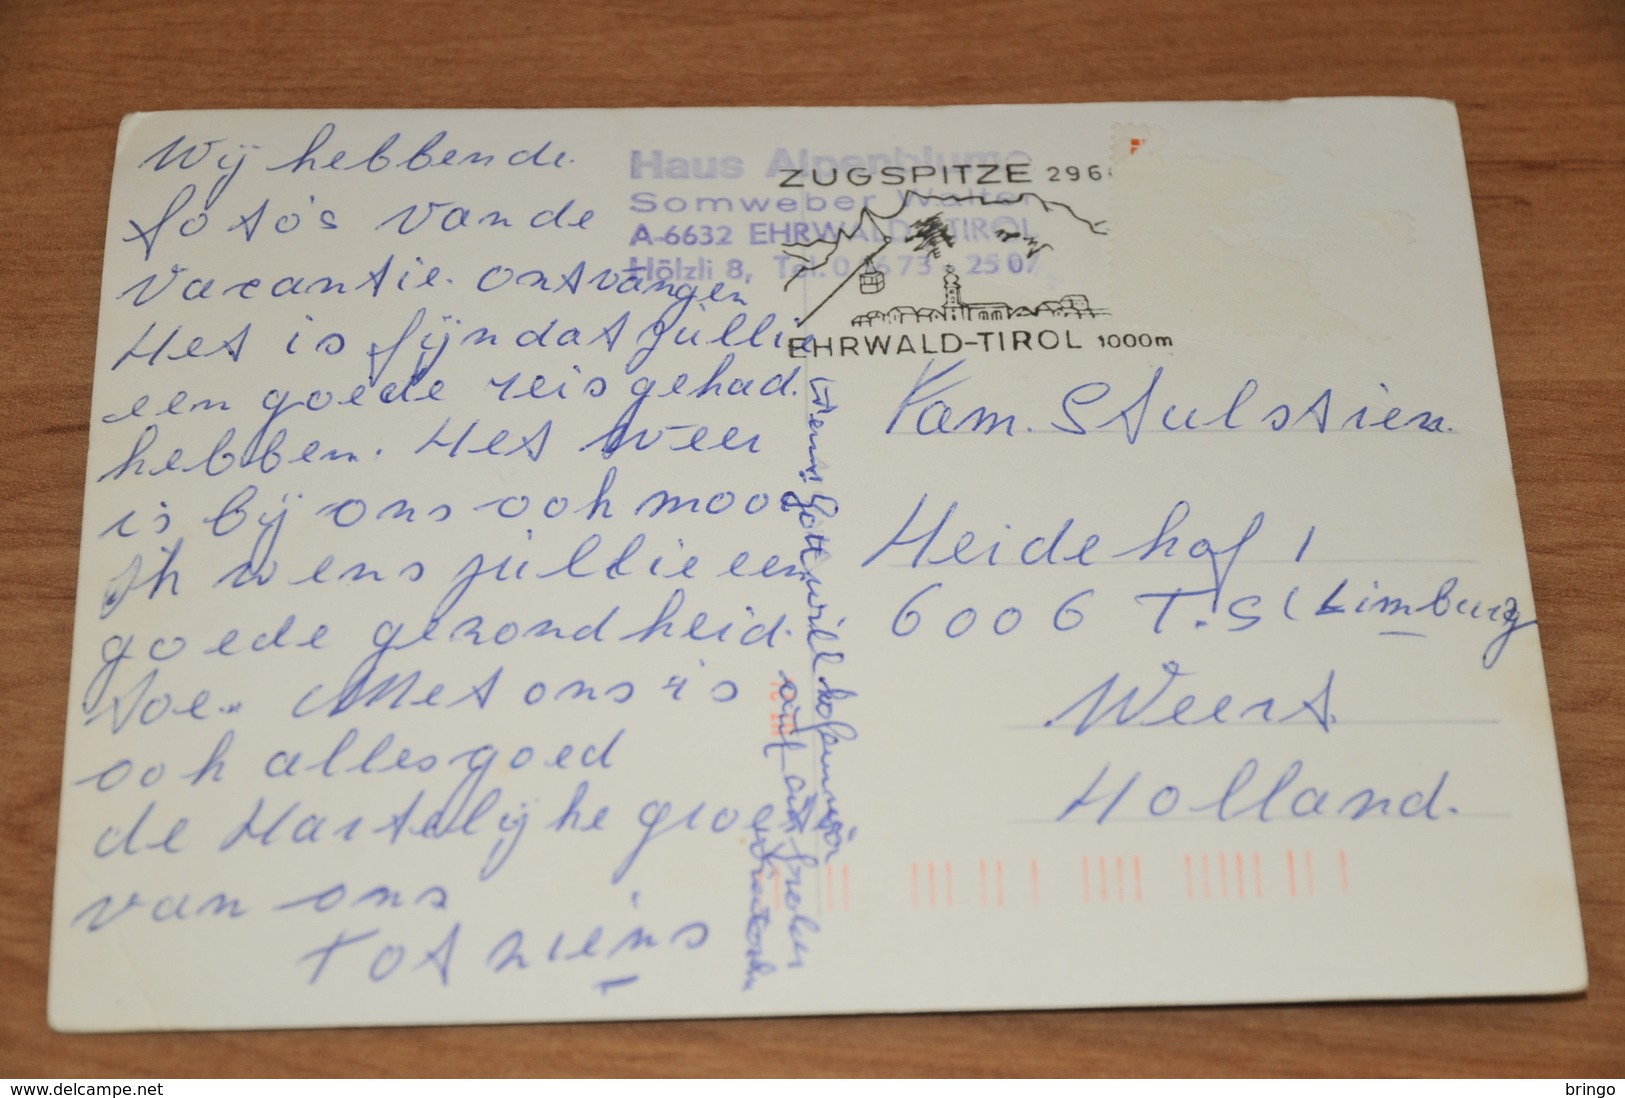 Wij hebbende.
foto's van de
vacantie. ontvangen
Het is fijn dat jullie
een goede reis gehad.
hebben. Het weer
is bij ons ook mooi
ik wens jullie een
goede gezondheid.
toe. Met ons is
ook alles goed
de Hartelijke groet
van ons
TOT ziens
Wenn Gott will kommen wir
auf
Haus Alpenblume
Somweber Walter
A-6632 EHRWALD-TIROL
Hölzli 8, Tel. 0 2507
ZUGSPITZE 296
EHRWALD-TIROL 1000m
Fam. Stulstien.
Heidehof 1
6006 T.S (Limburg
Weert.
Holland.
www.delcampe.net
bringo